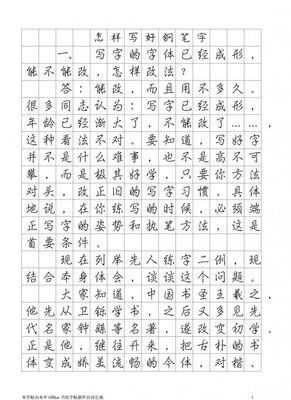 怎样写好钢笔字
一、写字的字体已经成形，
能不能改，怎样改法？
答：能改，而且用不多久。
很多同志认为：写字已经成形，
年龄已经渐大了，不能改了……，
这种看法不对。要知道，写好字
并不是什么难事，也不是高不可
攀，而是极其好学，只要你方法
对头，改正旧的写字习惯。具体
地说，在你练写的时候，必须端
正写字的姿势和执笔方法，这是
首要条件。
现在列举先人练字二例，现
结合本身体会，谈谈这个问题。
大家知道，中国书圣王羲之，
他先从卫铄学书，之后又多见先
代名家钟繇等名著，遂改变初学
正是他，继往开来，把古朴的书
体变成娇美流畅的今体，对楷、
本字帖由水中 Office 书法字帖插件自动生成
1